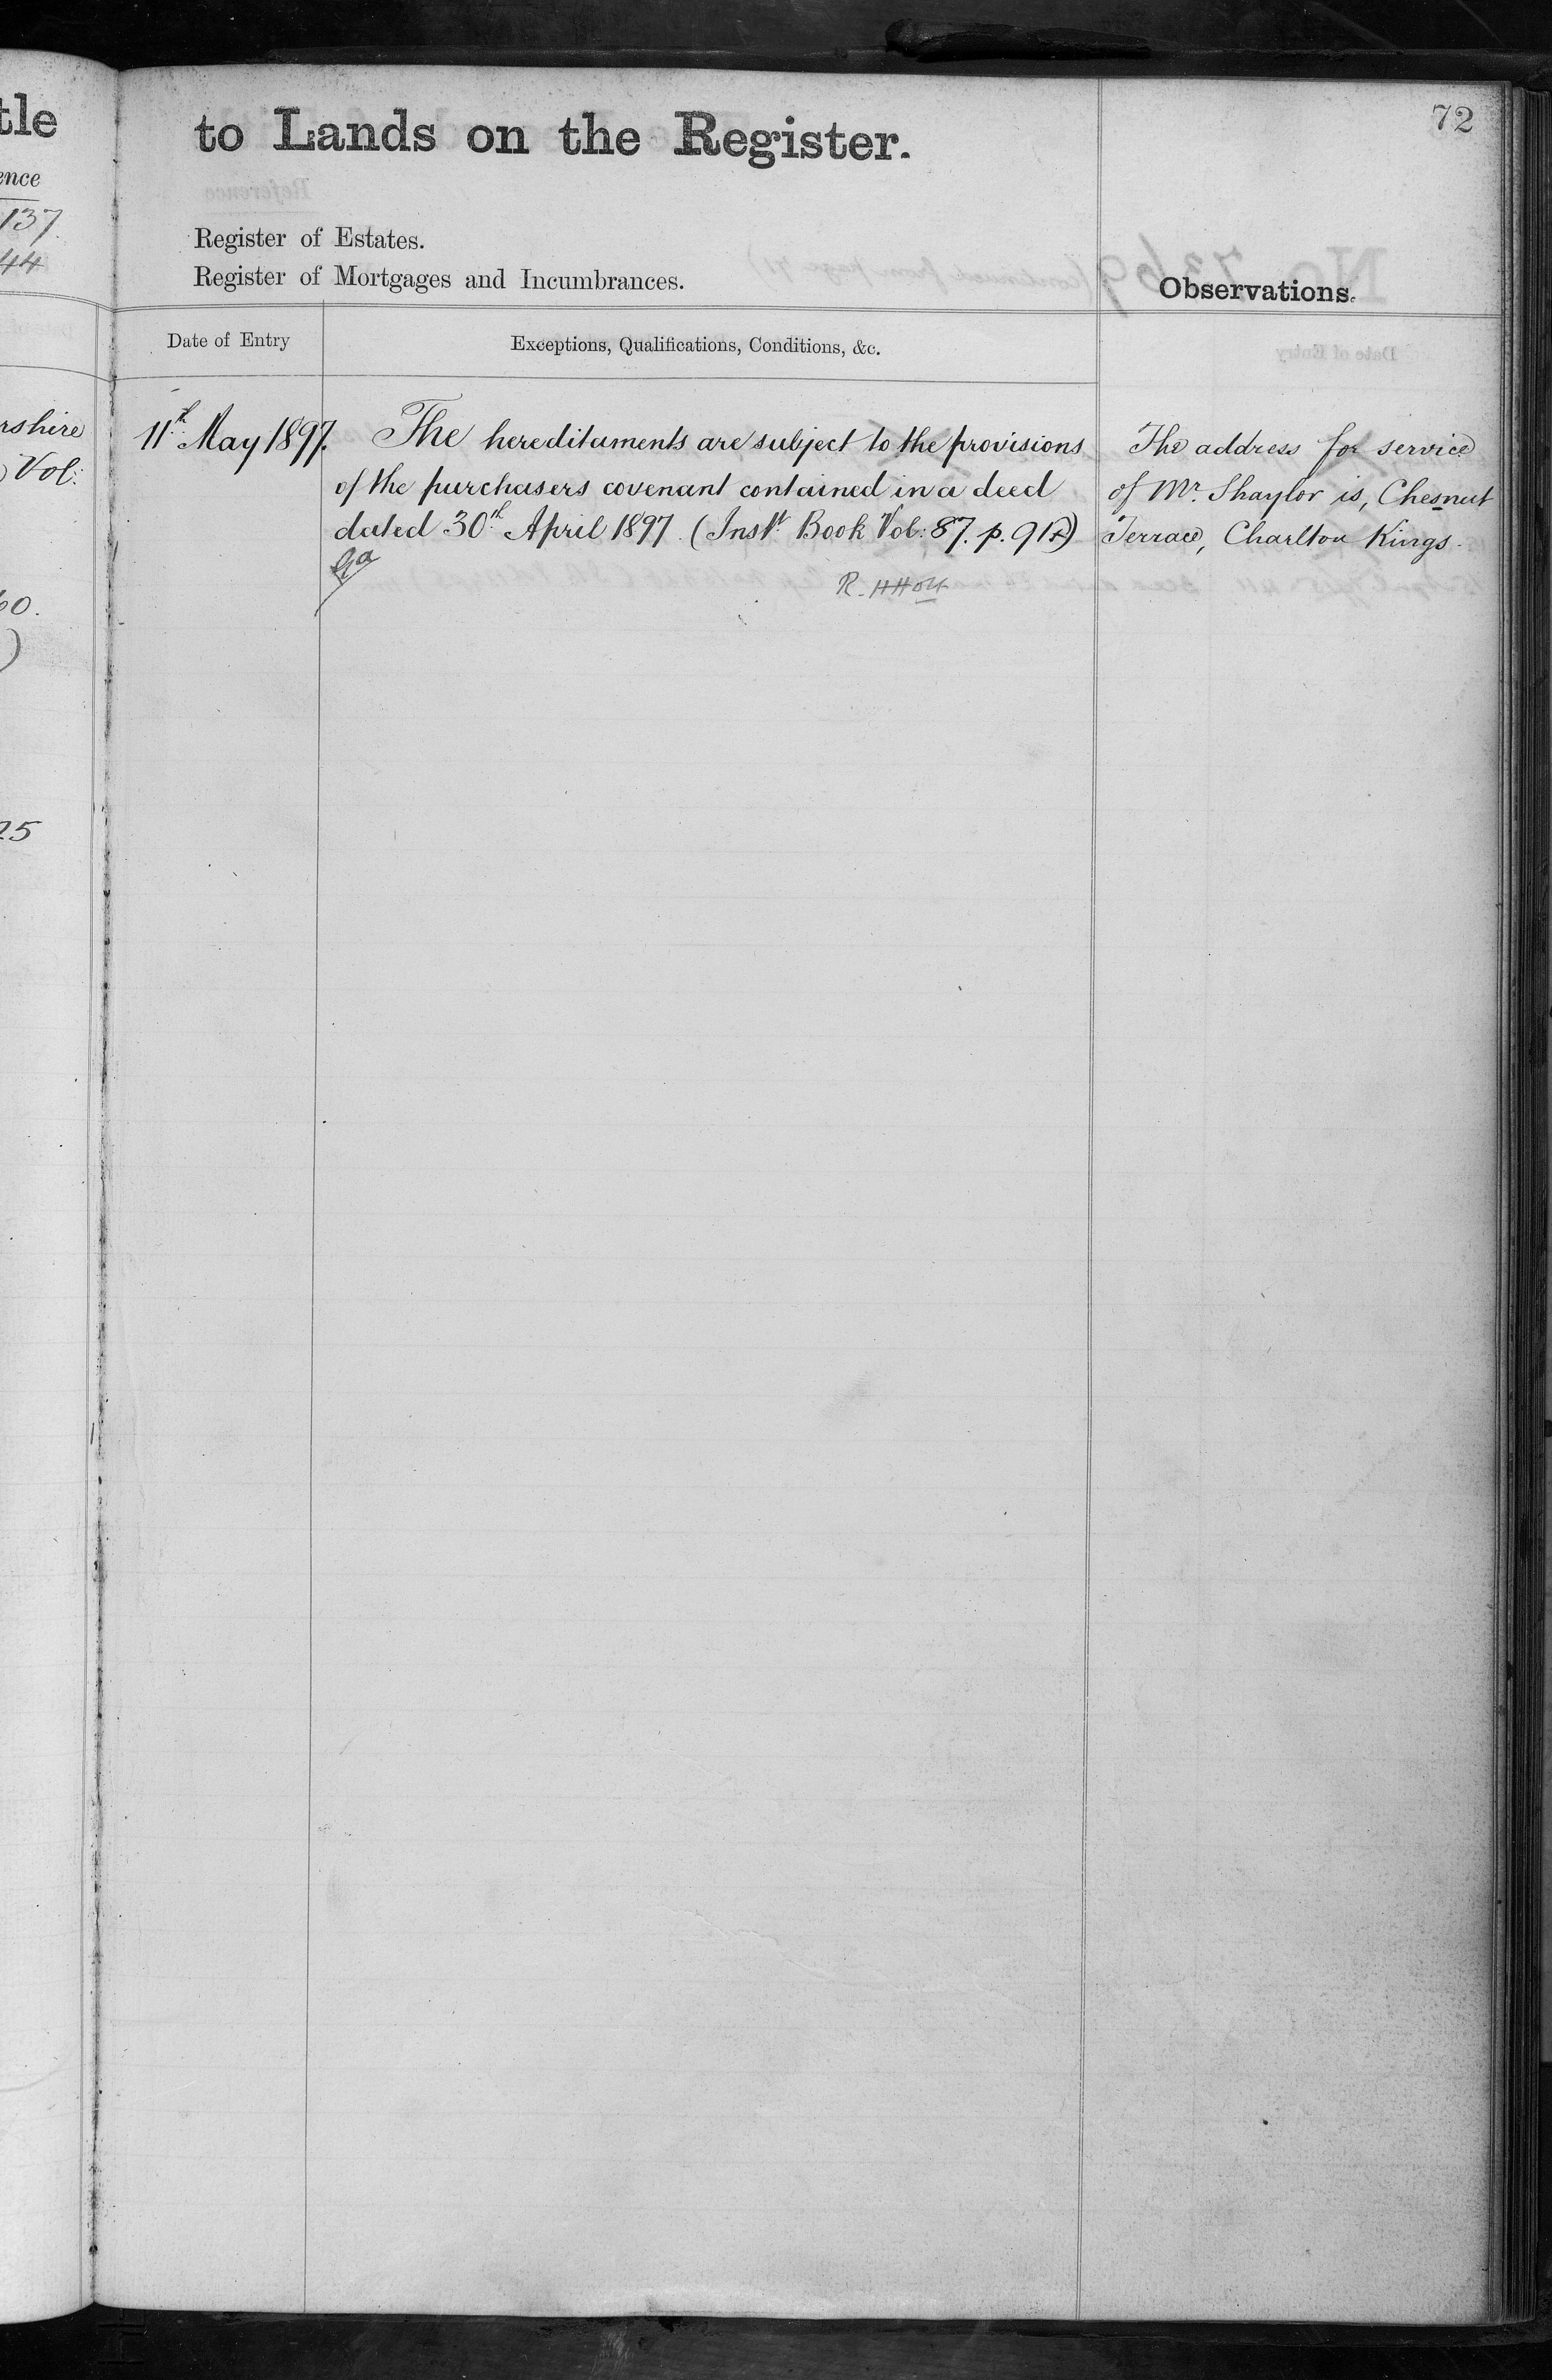 tle
ence
137
44
rshire
Vol:
60.
)
25
72
to Lands on the Register.
Register of Estates.
Register of Mortgages and Incumbrances.
Observations.
Date of Entry
Exceptions, Qualifications, Conditions, &c.
11th May 1897.
The hereditaments are subject to the provisions
of the purchasers covenant contained in a deed
dated 30th April 1897. (Inst. Book Vol: 87. p. 91
R. H Holt
The address for service
of Mr. Shaylor is, Chesnut
Terrace, Charlton Kings.